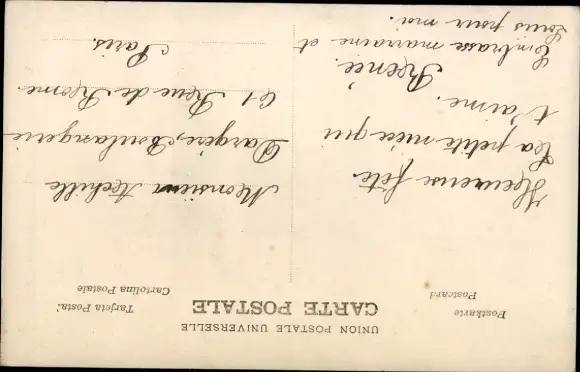 UNION POSTALE UNIVERSELLE
CARTE POSTALE
Postkarte
Postcard
Tarjeta Postal
Cartolina Postale
Heureuse fête
La petite nièce qui
t'aime.
Renée.
Embrasse marraine et
Louis pour moi.
Monsieur Achille
Dargère, Boulangerie
61 Rue de Rome
Paris.